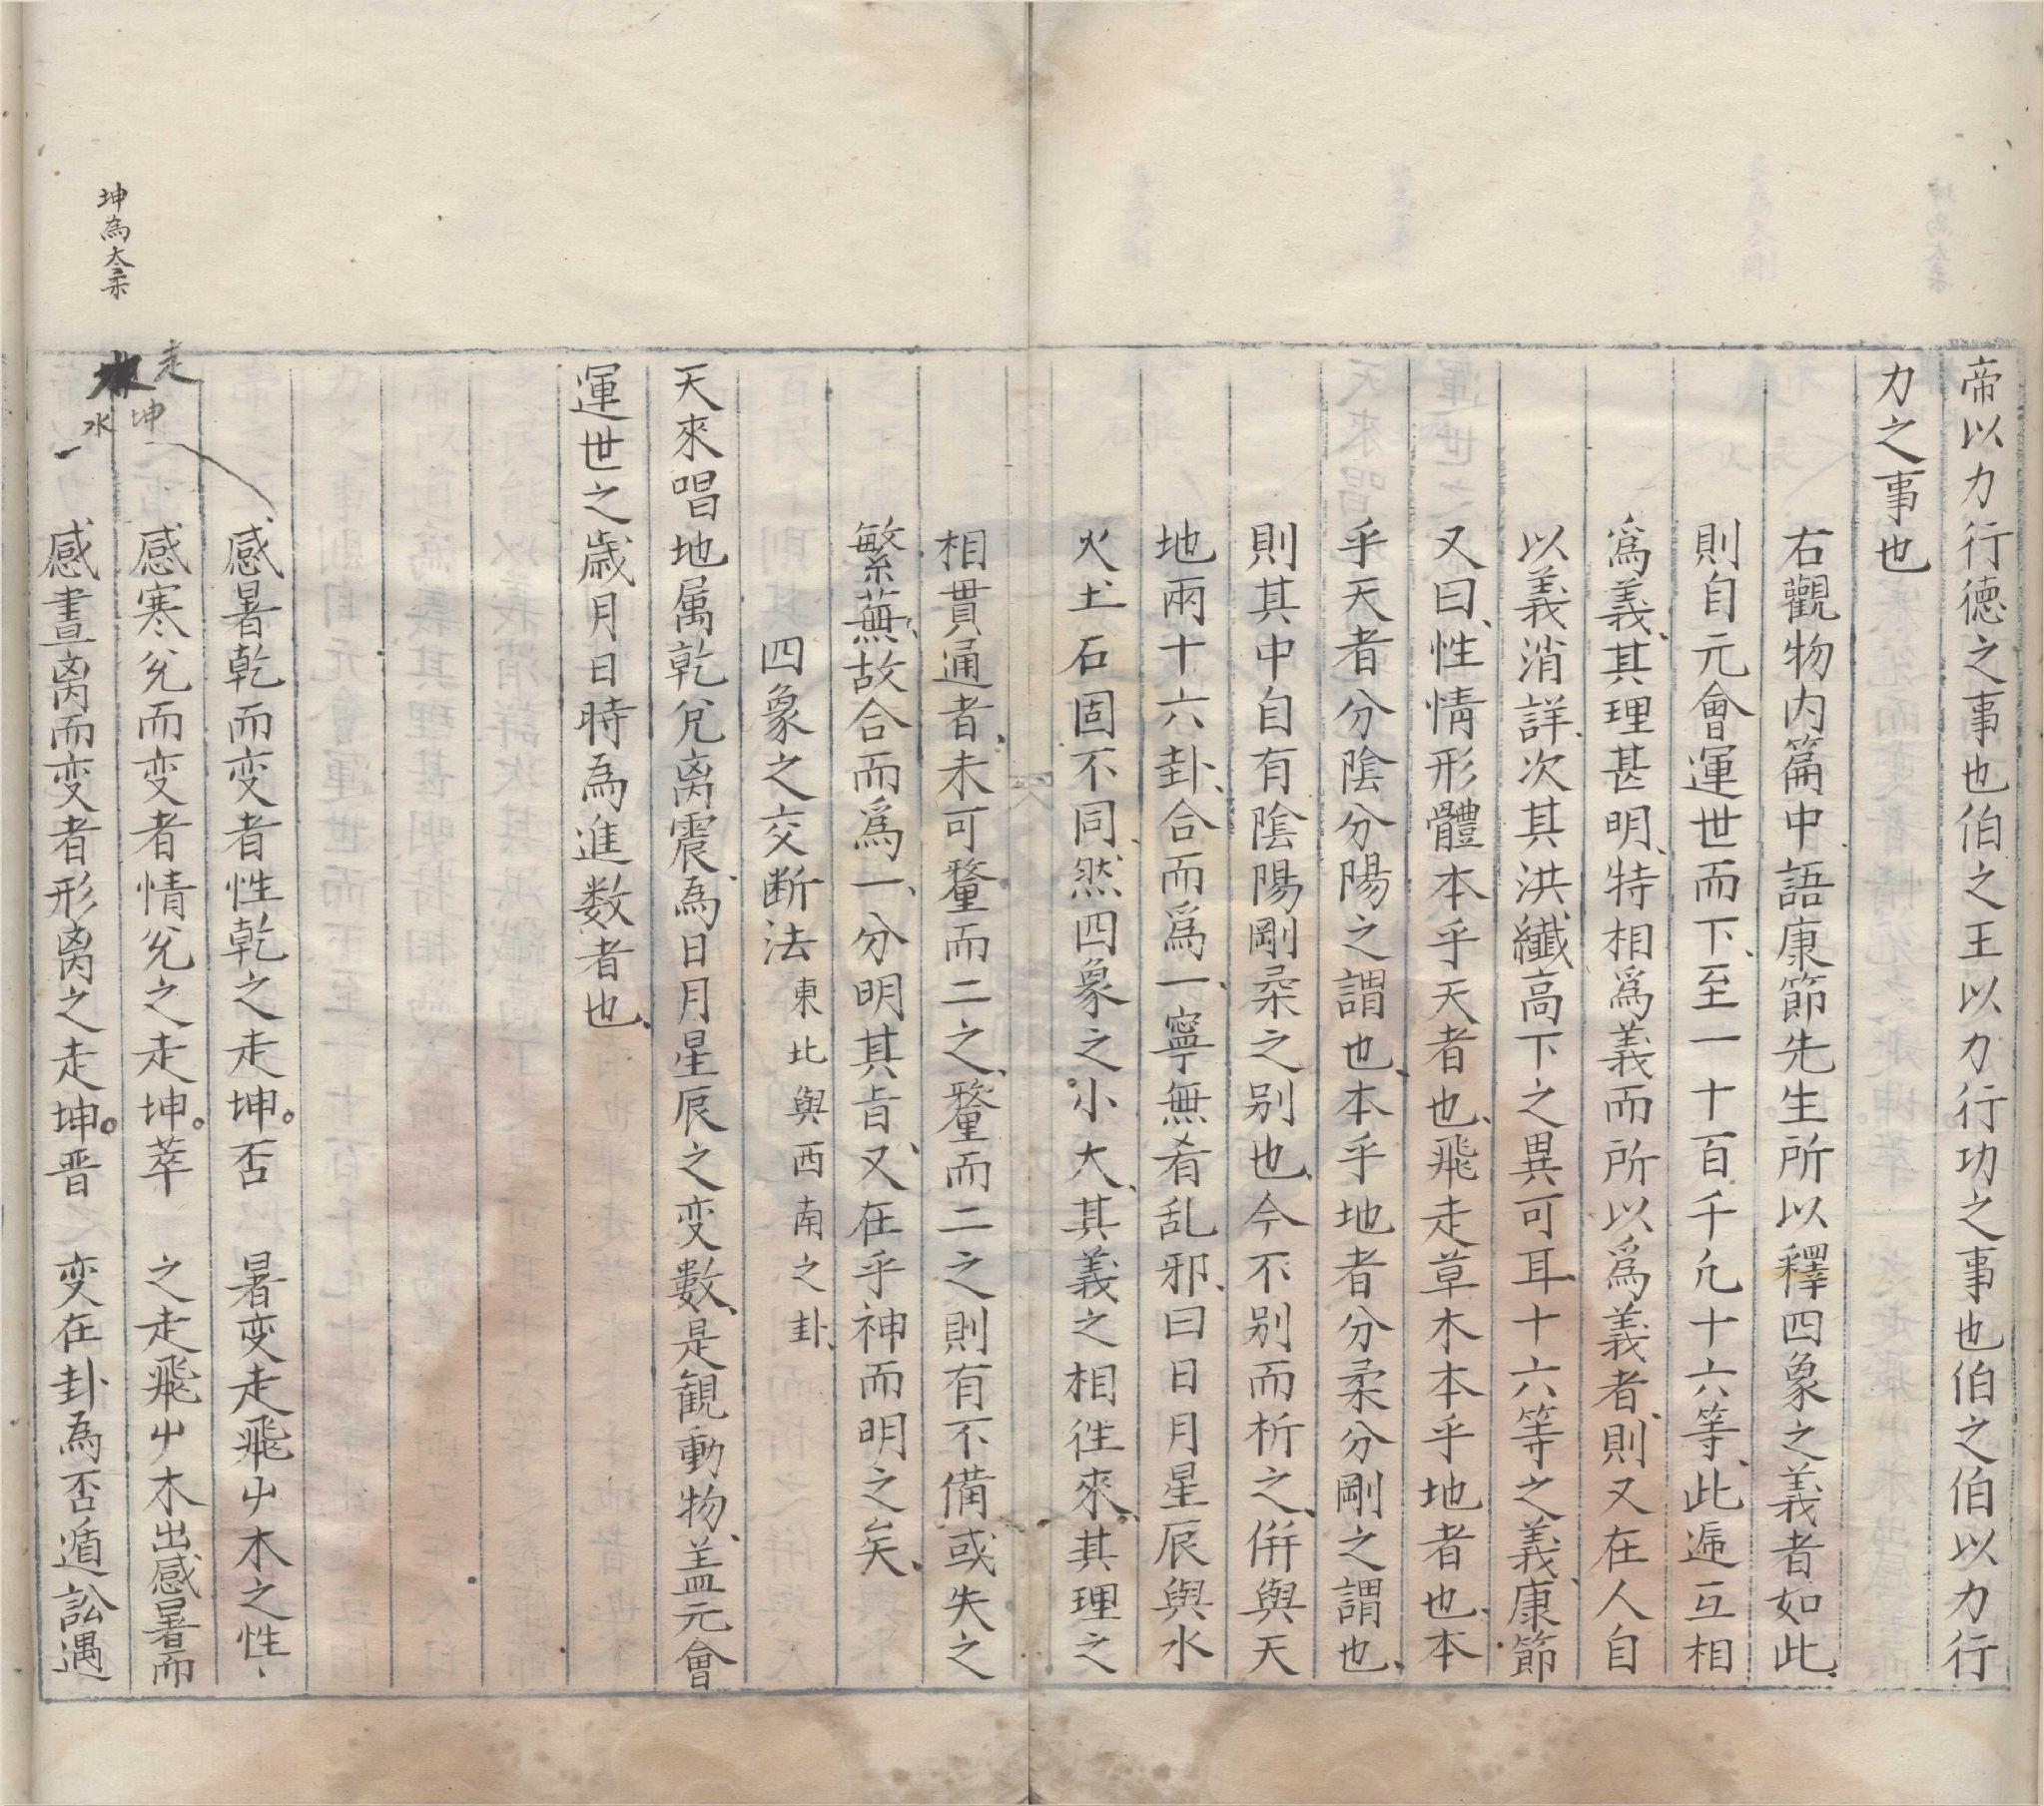 帝以力行德之事也伯之王以力行功之事也伯之伯以力行
力之事也
右觀物内篇中語康節先生所以釋四象之義者如此
則自元會運世而下至一十百千凢十六等此遍互相
爲義其理甚明特相爲義而所以爲義者則又在人自
以義消詳次其洪纖高下之異可耳十六等之義康節
又曰性情形體本乎天者也飛走草木本乎地者也本
乎天者分陰分陽之謂也本乎地者分柔分剛之謂也
則其中自有陰陽剛柔之别也今不别而析之併與天
地兩十六卦合而爲一寧無肴乱邪曰日月星辰與水
火土石固不同然四象之小大其義之相徃來其理之
相貫通者未可釐而二之釐而二之則有不備或失之
繁蕪故合而爲一分明其旨又在乎神而明之矣
四象之交断法東北與西南之卦
天來唱地属乾兊离震為日月星辰之变數是観動物盖元會
運世之歳月日時為進数者也
坤為太柔
走
坤
水
感暑乾而变者性乾之走坤。否 暑变走飛屮木之性
感寒兊而变者情兊之走坤。萃 之走飛屮木出感暑而
感晝离而变者形离之走坤。晋 变在卦為否遁訟遇